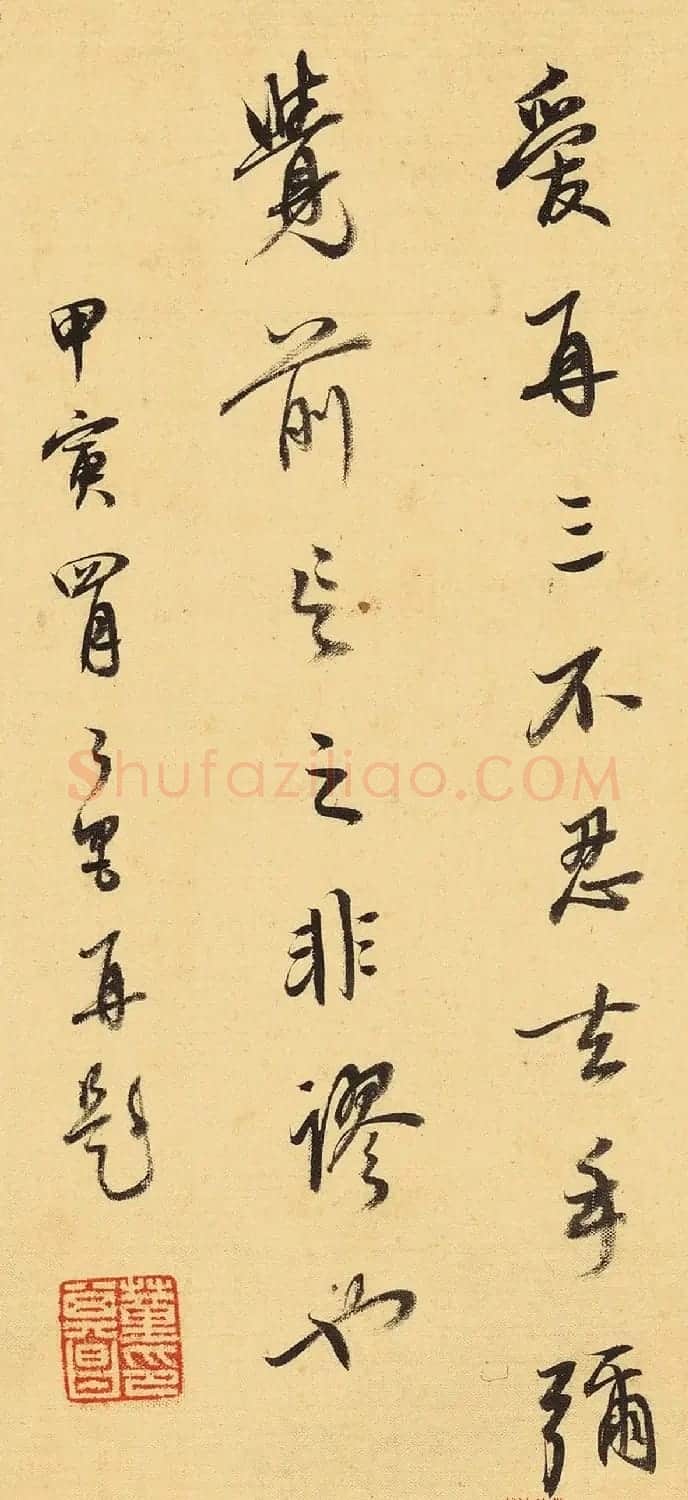 愛再三不忍去手彌
覺前言之非謬也
甲寅四月玄宰再題
董其昌印
Shufaziliao.COM